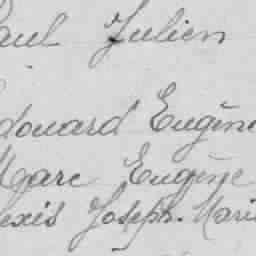 aul Julien
douard Eugèn
Marc Eugène
exis Joseph-Mari